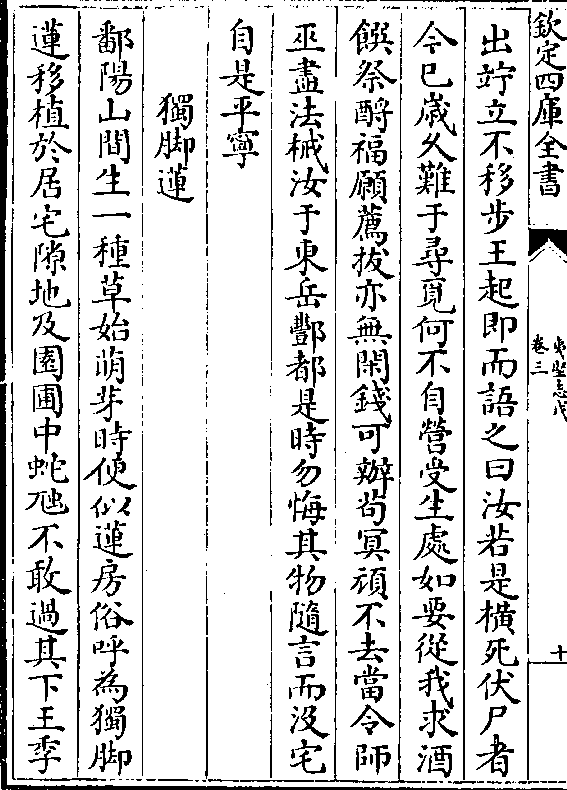 欽定四庫全書
夷堅志戊
卷三
十
出竚立不移步王起即而語之曰汝若是橫死伏尸者
今已歲久難于尋覓何不自營受生處如要從我求酒
饌祭酹福願薦拔亦無閑錢可辦茍冥頑不去當令師
巫盡法械汝于東岳酆都是時勿悔其物隨言而没宅
自是平寧
獨脚蓮
鄱陽山間生一種草始萌芽時便似蓮房俗呼為獨脚
蓮移植於居宅隙地及園圃中蛇虺不敢過其下王季